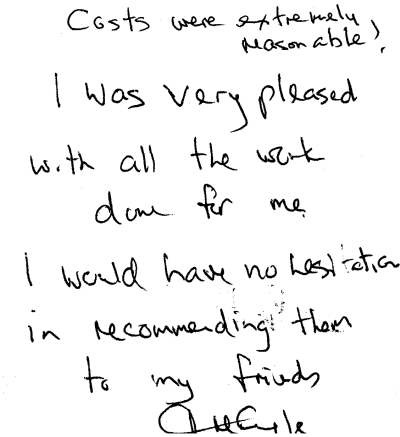 Costs were extremely
reasonable!
I was very pleased
with all the work
done for me
I would have no hesitation
in recommending them
to my friends